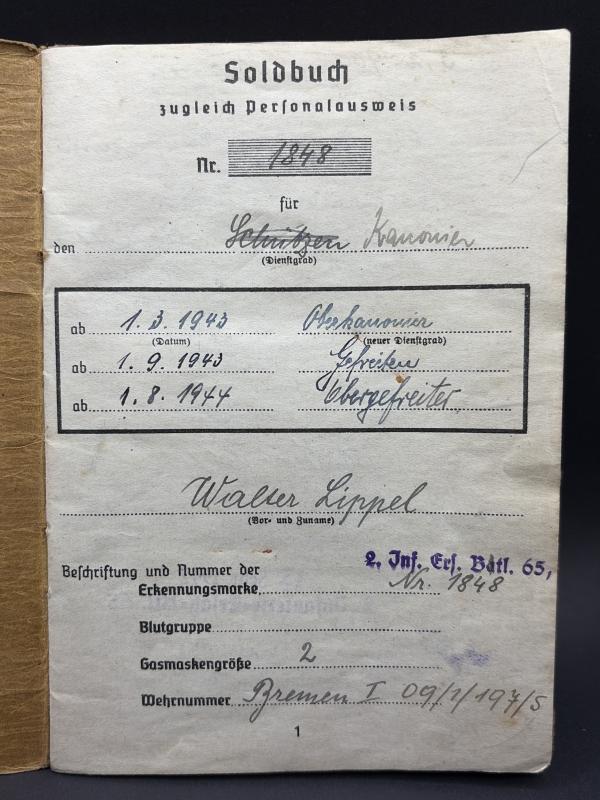 Soldbuch
zugleich Personalausweis
Nr. 1848
für
den Schützen Kanonier
(Dienstgrad)
ab 1.3.1943 Oberkanonier
(Datum) (neuer Dienstgrad)
ab 1.9.1943 Gefreiten
ab 1.8.1944 Obergefreiter
Walter Lippel
(Vor- und Zuname)
2. Inf. Ers. Batl. 65,
Beschriftung und Nummer der
Erkennungsmarke Nr. 1848
Blutgruppe
Gasmaskengröße 2
Wehrnummer Bremen I 09/1/197/5
1